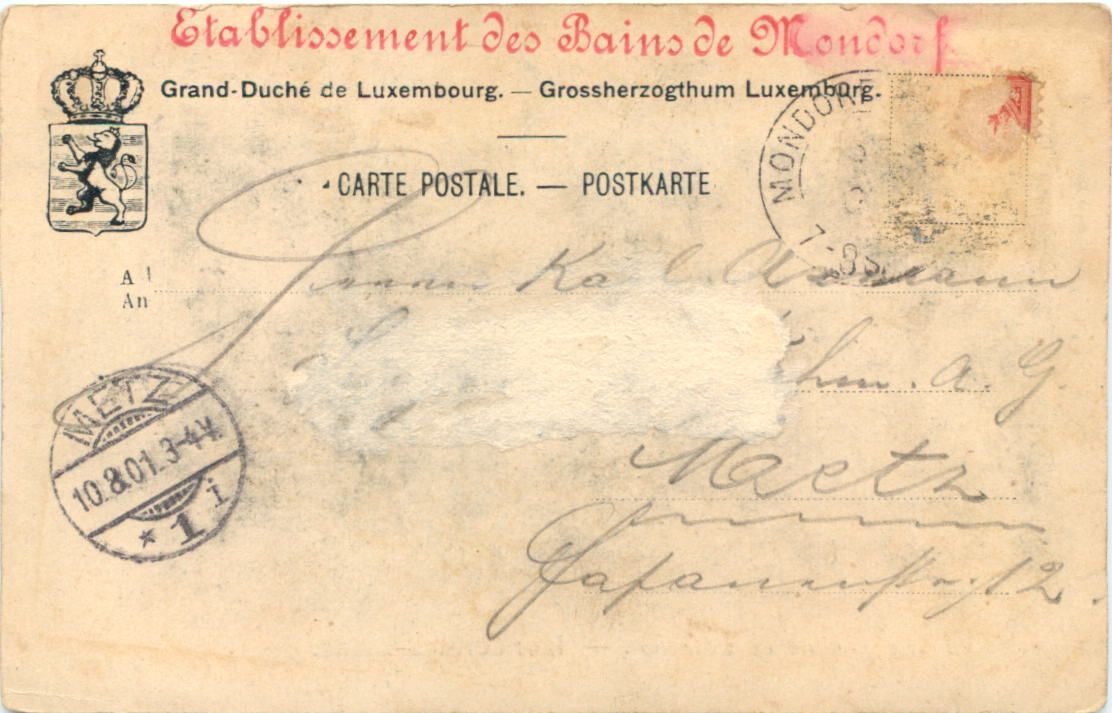 Etablissement des Bains de Mondorf
Grand-Duché de Luxembourg. — Grossherzogthum Luxemburg.
CARTE POSTALE. — POSTKARTE
MONDORF
A
An
Herrn Karl
A. G.
Metz
12.
METZ
10.8.01.3-4V.
* 1 i